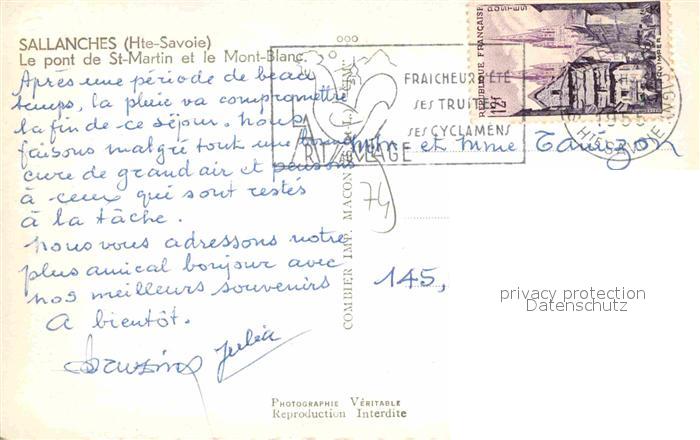 SALLANCHES (Hte-Savoie)
Le pont de St-Martin et le Mont-Blanc.
Après une période de beau
temps, la pluie va compromettre
la fin de ce séjour. Nous
faisons malgré tout une bonne
cure de grand air et pensons
à ceux qui sont restés
à la tâche.
Nous vous adressons notre
plus amical bonjour avec
nos meilleurs souvenirs
A bientôt.
COMBIER IMP. MACON
74
FRAICHEUR ÉTÉ
SES TRUITES
SES CYCLAMENS
POSTES
REPUBLIQUE FRANÇAISE
QUIMPER
12f
1955
HTE SAVOIE
Mr et Mme
145,
privacy protection
Datenschutz
PHOTOGRAPHIE VÉRITABLE
Reproduction Interdite